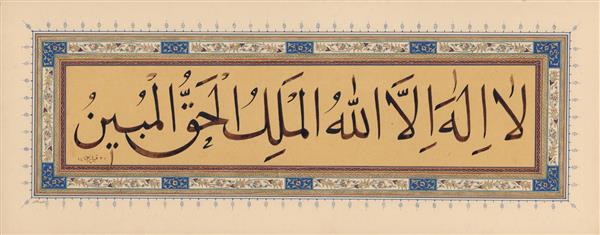 لا اِلٰهَ اِلَّا اللهُ المَلِكُ الْحَقُّ الْمُبين